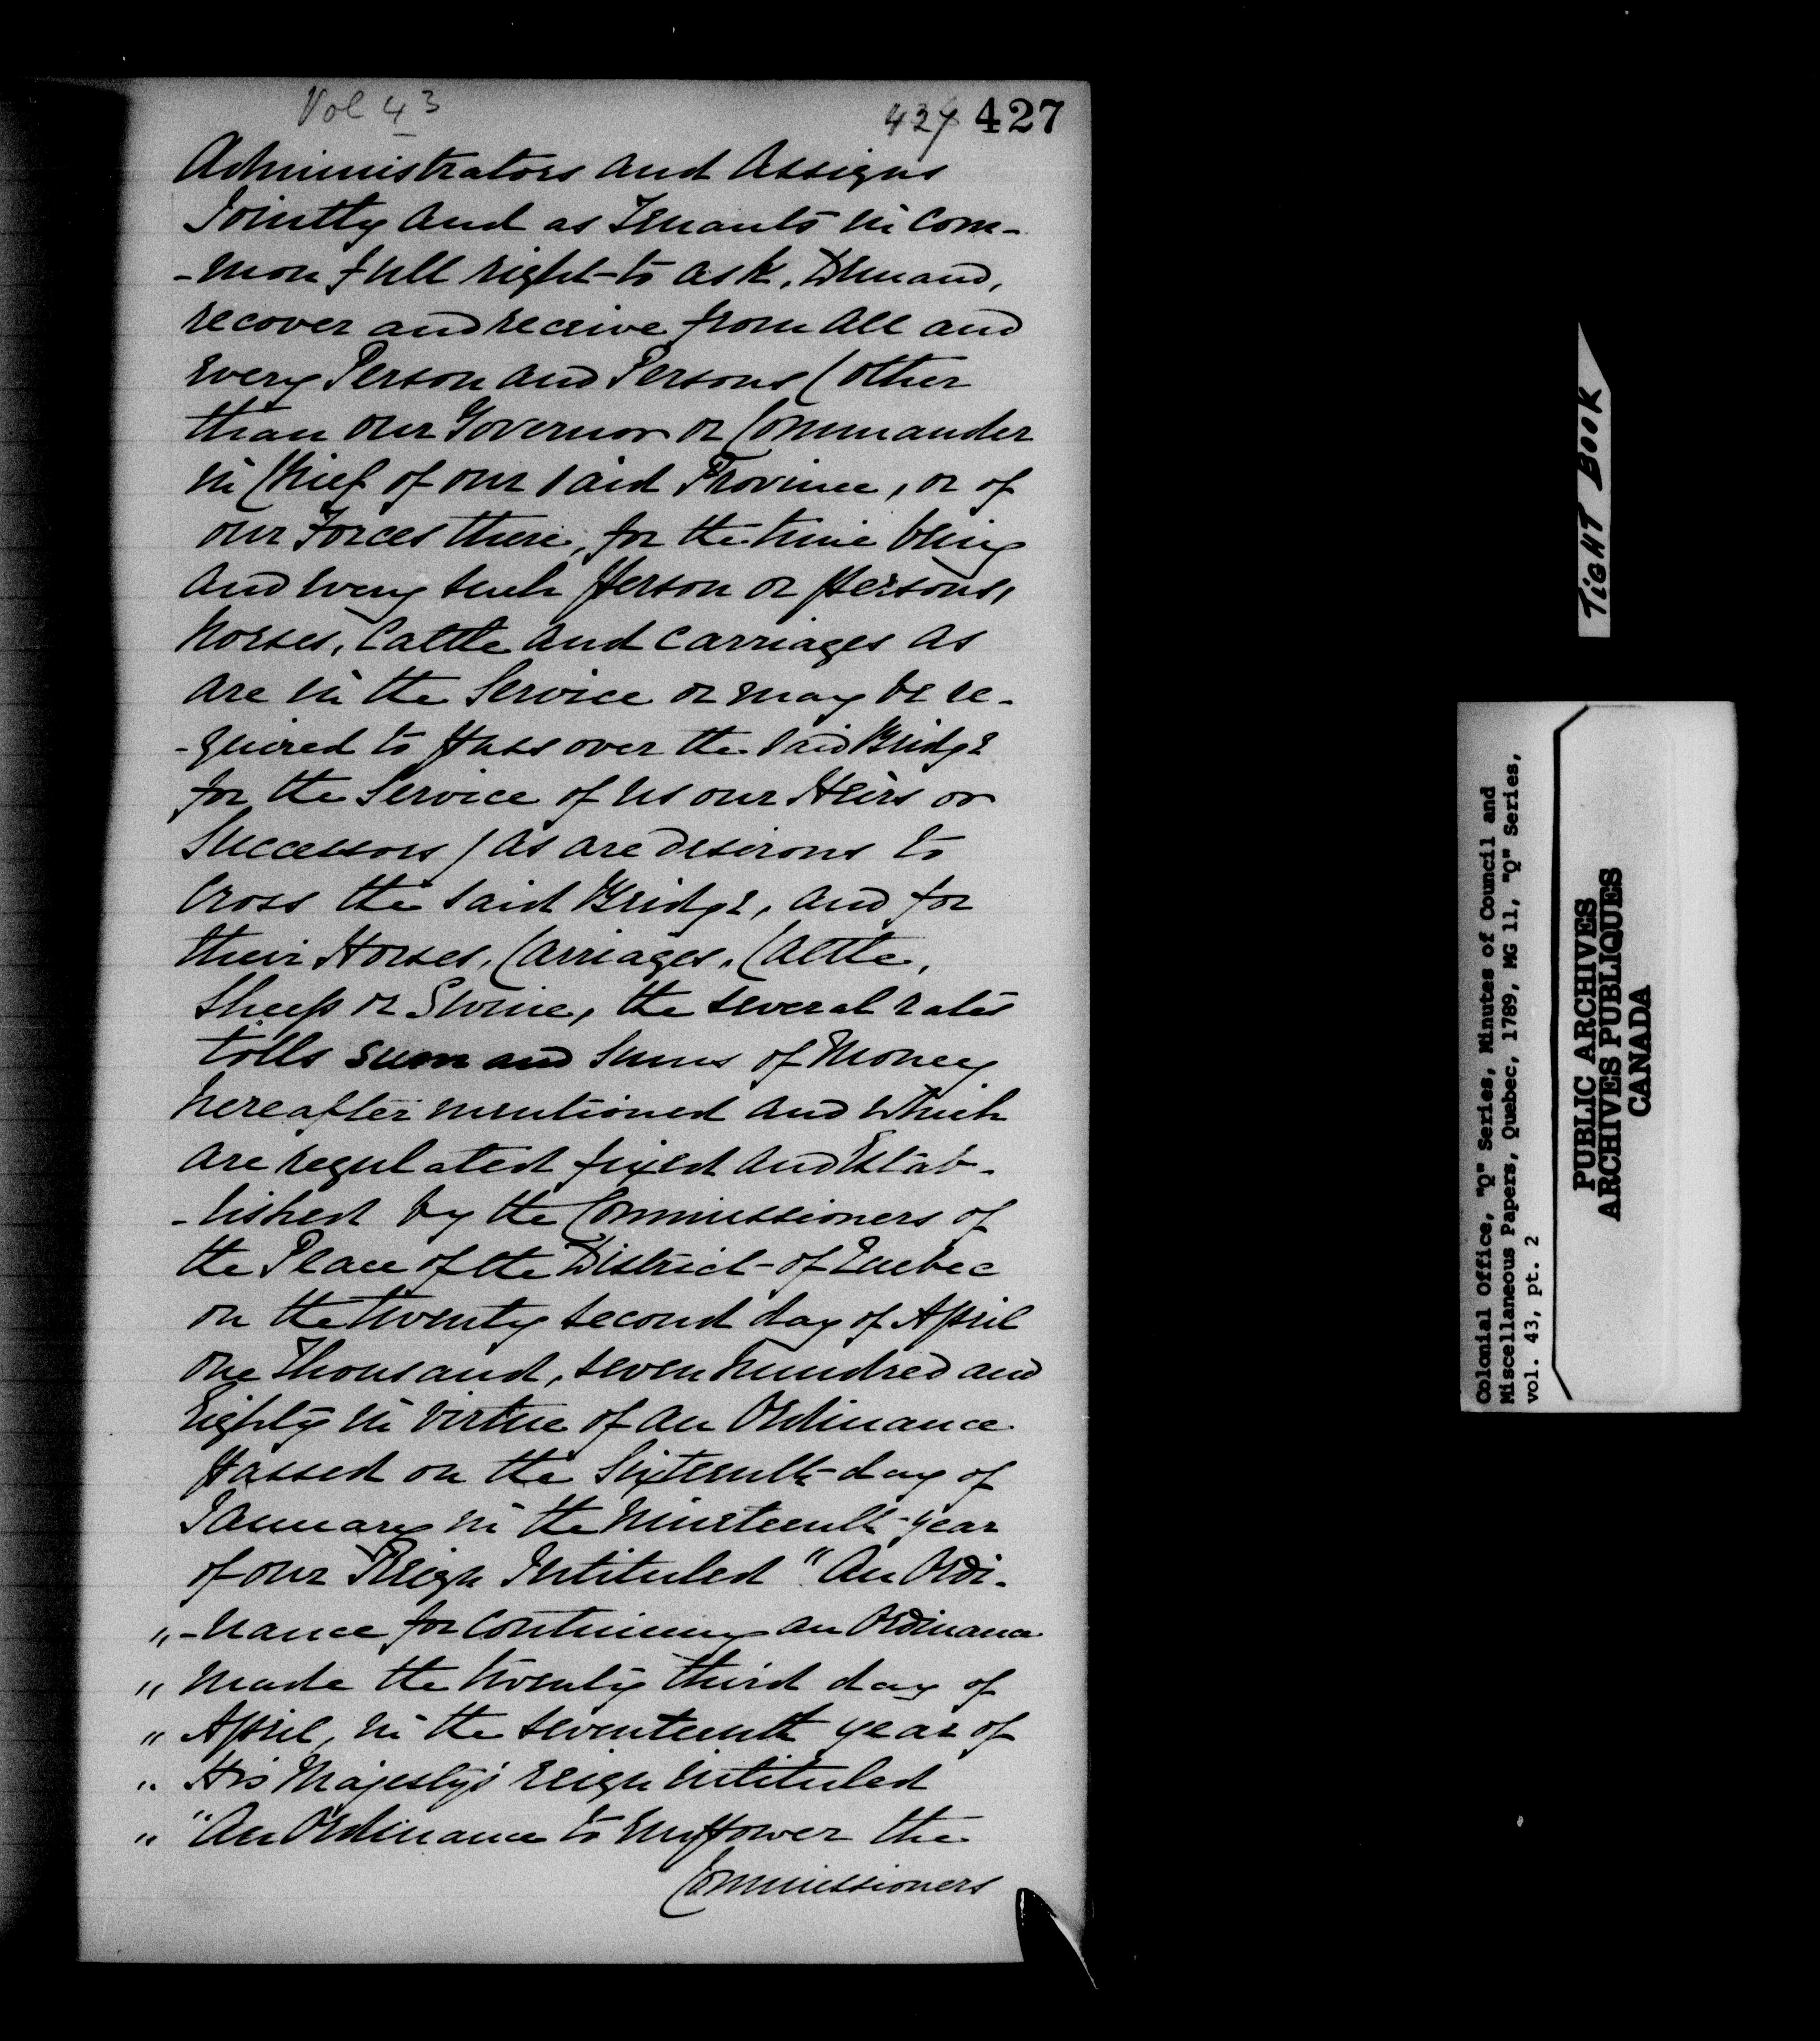 Vol 43
427 427
Administrators and Assigns
Jointly and as Tenants in Com-
-mon full right to ask, Demand,
recover and receive from all and
every Person and Persons (other
than our Governor or Commander
in Chief of our said Province, or of
our Forces there, for the time being
and every such person or persons,
horses, Cattle and Carriages as
are in the Service or may be re-
-quired to pass over the said Bridge
for the Service of us our Heirs or
Successors) as are desirous to
Cross the said Bridge, and for
their Horses, Carriages, Cattle,
Sheep or Swine, the several rates
tolls sum and sums of Money
hereafter mentioned and which
are regulated fixed and Estab-
-lished by the Commissioners of
the Peace of the District of Quebec
on the twenty second day of April
One thousand, seven hundred and
Eighty in virtue of an Ordinance
passed on the Sixteenth day of
January in the Nineteenth year
of our Reign Intituled "An Ordi-
"-nance for continuing an Ordinance
" made the twenty third day of
" April, in the seventeenth year of
" His Majesty's reign intituled
" "An Ordinance to empower the
Commissioners
TIGHT BOOK
Colonial Office, "Q" Series, Minutes of Council and
Miscellaneous Papers, Quebec, 1789, MG 11, "Q" Series,
vol. 43, pt. 2
PUBLIC ARCHIVES
ARCHIVES PUBLIQUES
CANADA